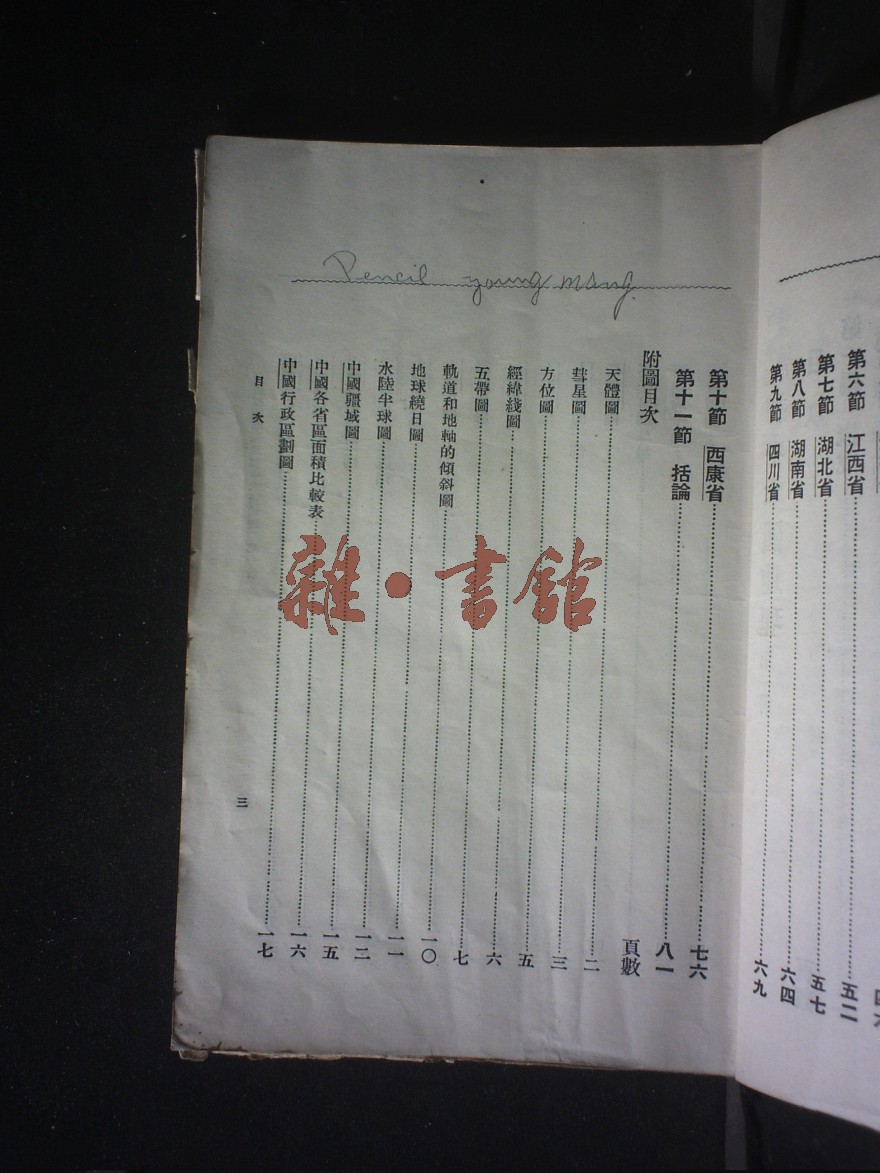 第六節 江西省 五二
第七節 湖北省 五七
第八節 湖南省 六四
第九節 四川省 六九
Pencil young mang.
第十節 西康省 七六
第十一節 括論 八一
附圖目次 頁數
天體圖 二
彗星圖 三
方位圖 五
經緯綫圖 六
五帶圖 七
軌道和地軸的傾斜圖 一〇
地球繞日圖 一一
水陸半球圖 一二
中國疆域圖 一五
中國各省區面積比較表 一六
中國行政區劃圖 一七
目次 三
雜·書館